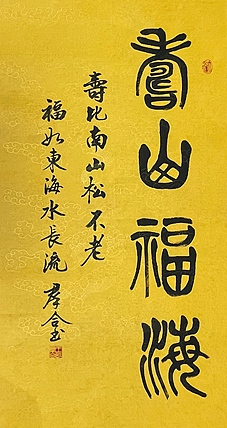 壽山福海
壽比南山松不老
福如東海水長流